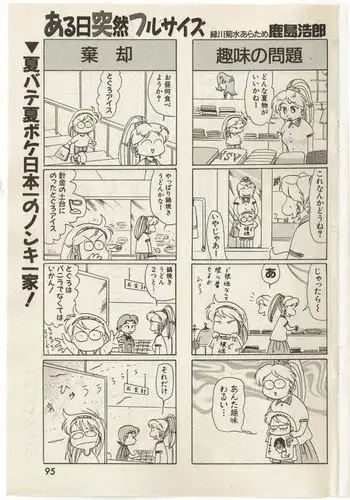 ある日突然フルサイズ
緑川菊水あらため鹿島浩郎
▼夏バテ夏ボケ日本一のノンキ一家!
趣味の問題
どんな着物が
いいかねー
これなんかどうね?
いやじゃあー
じゃったら〜
あ
あんた趣味
わるい…
棄却
お昼何食べ
ようか?
とぐろアイス
やっぱり鍋焼き
うどんかなー
針金の土台に
のったとぐろアイス
鍋焼き
うどん
2つと…
とぐろは
バニラでなくては
いかん!
お会計
それだけ
お会計
びゅうう
95